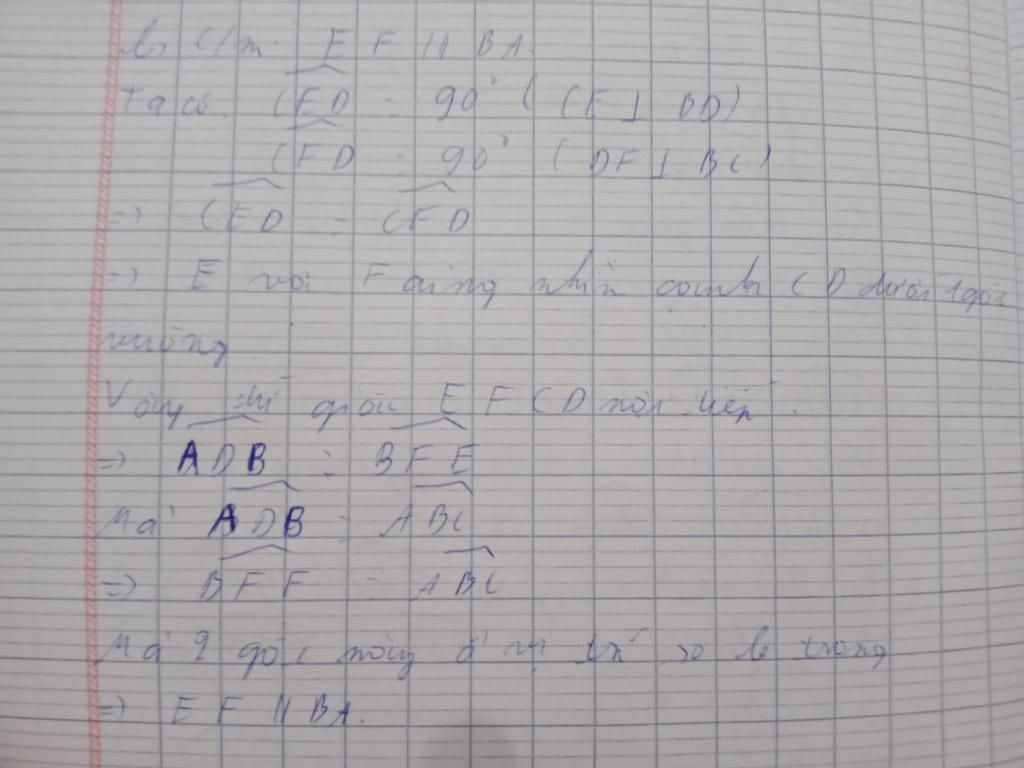 b, C/m. EF // BA.
Ta có. CED = 90° ( CE ⊥ BD)
CFD = 90° ( DF ⊥ BC)
=> CED = CFD
=> E và F cùng nhìn cạnh CD dưới 1 góc
vuông
Vậy tứ giác EFCD nội tiếp.
=> ADB = BFE
Mà ADB = ABC
=> BFF = ABC
Mà 2 góc này ở vị trí so le trong
=> EF // BA.